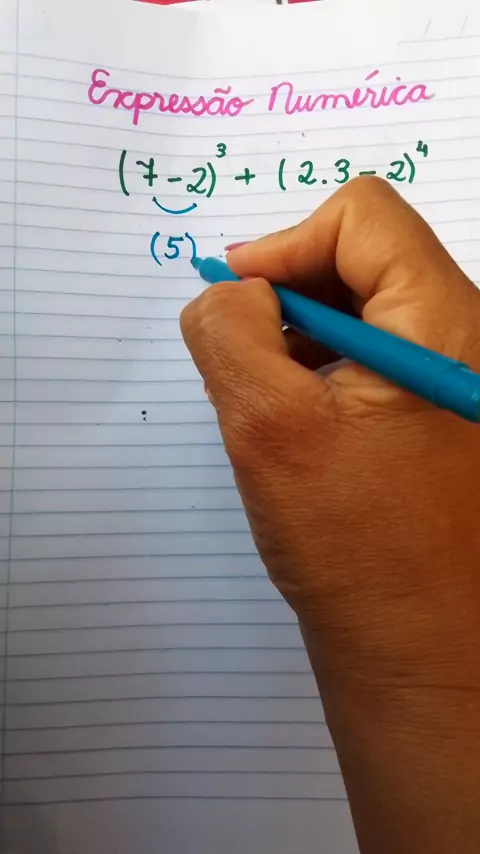 Expressão Numérica
(7-2)³ + (2.3-2)⁴
(5)